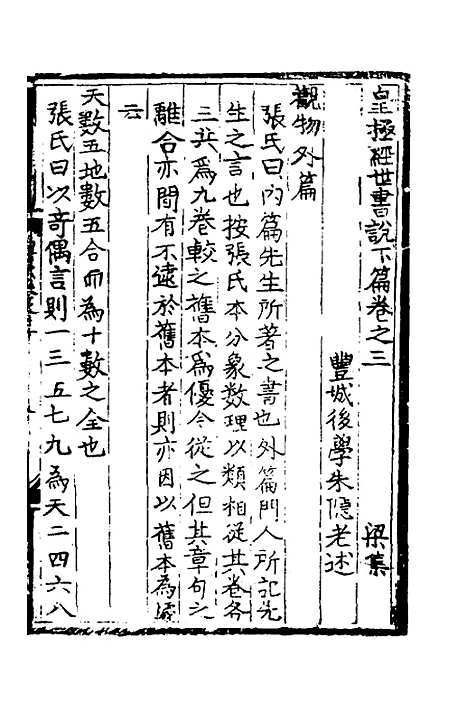 皇極經世書說下篇卷之三　梁集
豐城後學朱隱老述
觀物外篇
張氏曰內篇先生所著之書也外篇門人所記先
生之言也按張氏本分象數理以類相從其卷各
三共爲九卷較之舊本爲優今從之但其章句之
離合亦間有不逮於舊本者則亦因以舊本為㨿
云
天數五地數五合而為十數之全也
張氏曰以奇偶言則一三五七九為天二四六八